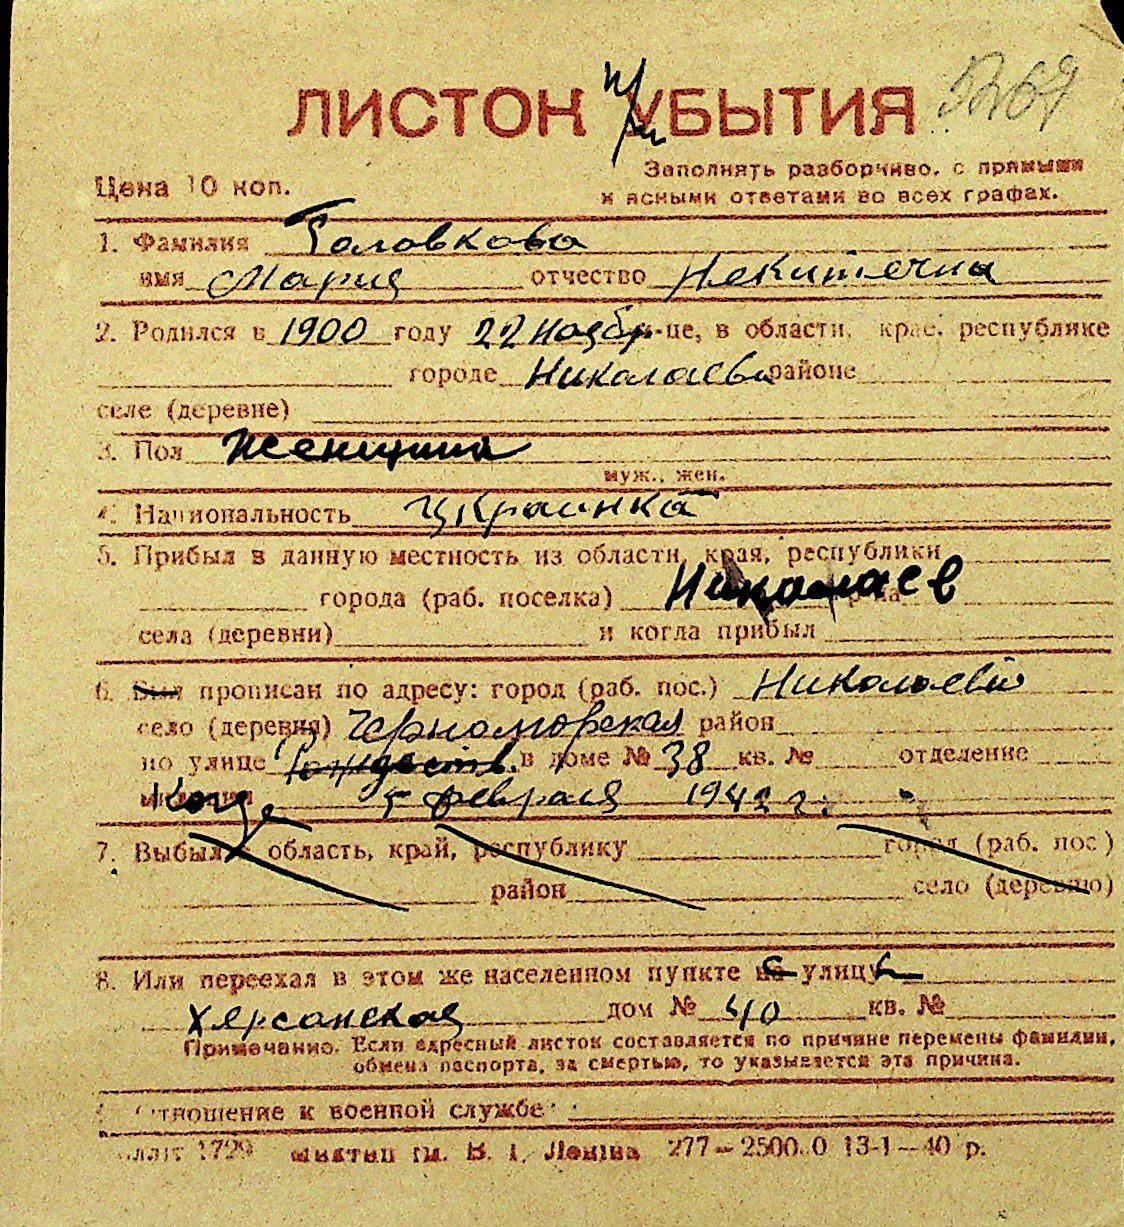 ЛИСТОК УБЫТИЯ 5269
Заполнять разборчиво, с прямыми
Цена 10 коп.
и ясными ответами во всех графах.
1. Фамилия Головкова
имя Мария отчество Некитечна
2. Родился в 1900 году 22 Ноября м-це, в области, крае, республике
городе Николаеви районе
селе (деревне)
3. Пол Женщина
муж., жен.
4. Национальность Украинка
5. Прибыл в данную местность из области, края, республики
города (раб. поселка) Николаев
села (деревни) и когда прибыл
6. Был прописан по адресу: город (раб. пос.) Николаеви
село (деревня) Черноморская район
по улице Рождеств. в доме № 38 кв. № отделение
Когда 5 февраля 1942 г.
7. Выбыл в область, край, республику город (раб. пос.)
район село (деревню)
8. Или переехал в этом же населенном пункте с улицы
Херсонская дом № 40 кв. №
Примечание. Если адресный листок составляется по причине перемены фамилии,
обмена паспорта, за смертью, то указывается эта причина.
Отношение к военной службе
1729 им. В. І. Леніна 277—2500.0 13-1—40 р.